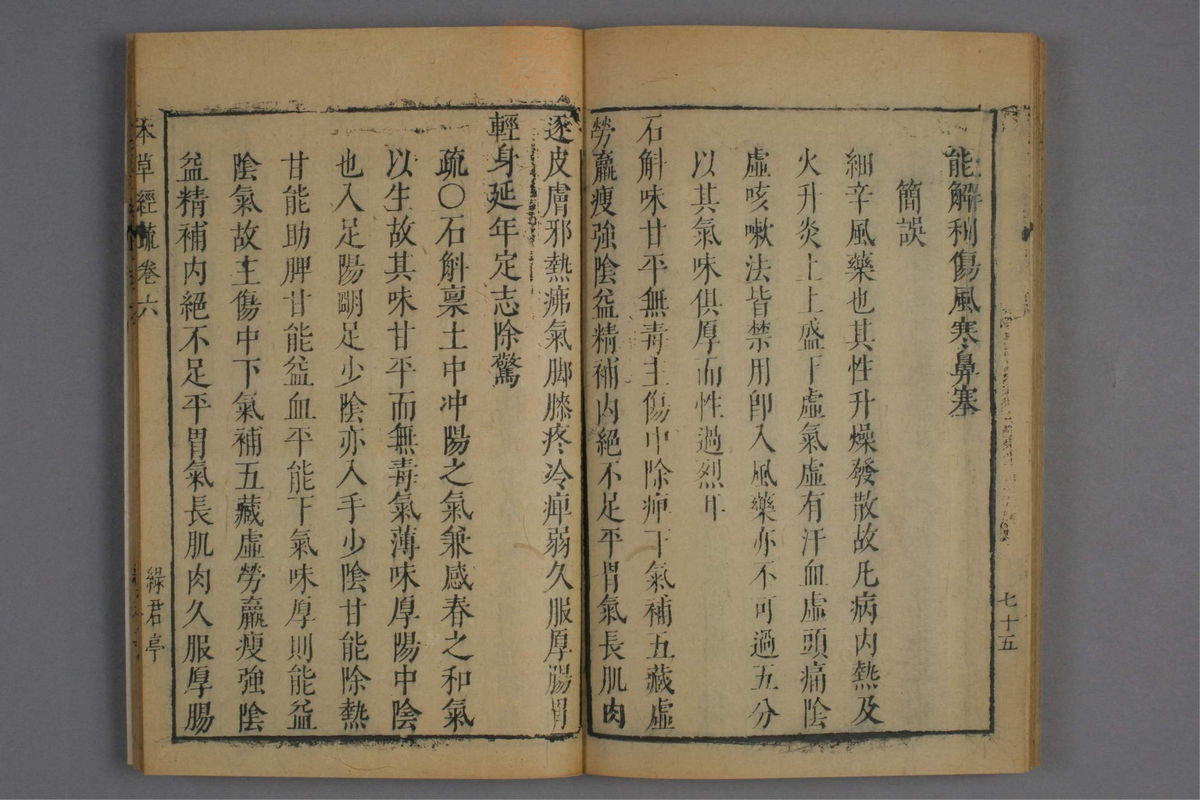 能解利傷風寒鼻塞
簡誤
細辛風藥也其性升燥發散故凡病内熱及
火升炎上上盛下虛氣虛有汗血虛頭痛陰
虛咳嗽法皆禁用卽入風藥亦不可過五分
以其氣味俱厚而性過烈耳
石斛味甘平無毒主傷中除痺下氣補五藏虛
勞羸瘦強陰益精補内絕不足平胃氣長肌肉
七十五
逐皮膚邪熱疿氣脚膝疼冷痺弱久服厚腸胃
輕身延年定志除驚
疏〇石斛禀土中冲陽之氣兼感春之和氣
以生故其味甘平而無毒氣薄味厚陽中陰
也入足陽朙足少陰亦入手少陰甘能除熱
甘能助脾甘能益血平能下氣味厚則能益
陰氣故主傷中下氣補五藏虛勞羸瘦強陰
益精補内絕不足平胃氣長肌肉久服厚腸
本草經疏卷六
綠君亭